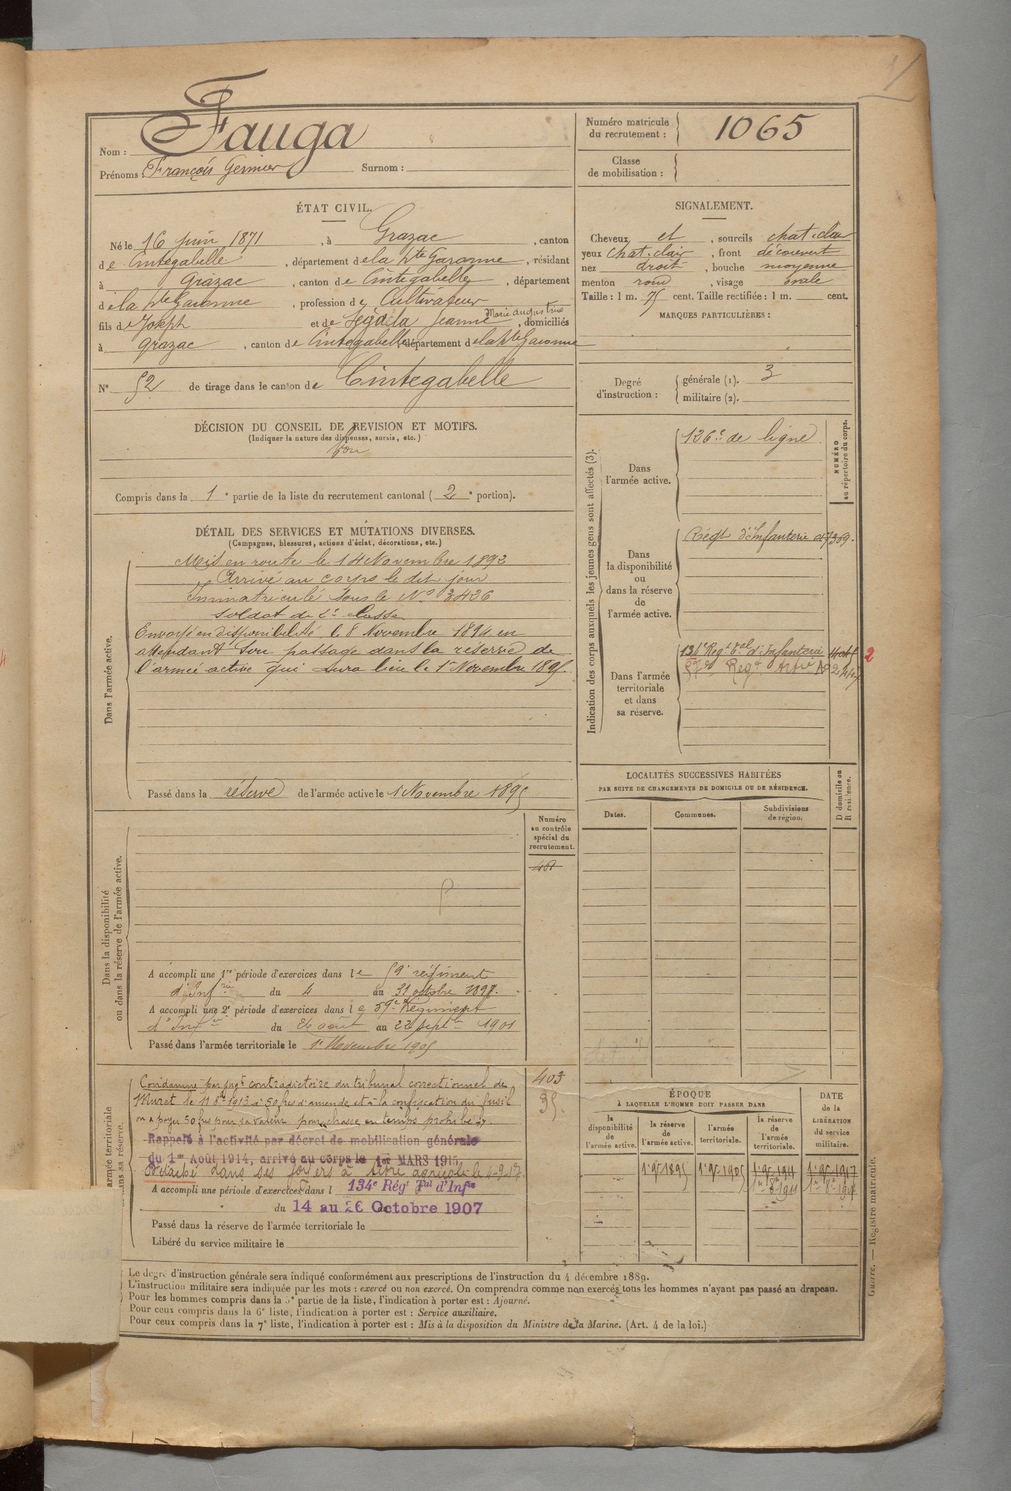 Nom : Fauga
Prénoms : François Germier Surnom :
Numéro matricule
du recrutement : 1065
Classe
de mobilisation :
ÉTAT CIVIL.
Né le 16 juin 1871, à Grazac, canton
de Cintegabelle, département de la Hte Garonne, résidant
à Grazac, canton de Cintegabelle, département
de la Hte Garonne, profession de Cultivateur
fils de Joseph et de Jeanne Marie augustine, domiciliés
à Grazac, canton de Cintegabelle, département de la Hte Garonne
N° 52 de tirage dans le canton de Cintegabelle
SIGNALEMENT.
Cheveux et, sourcils chat. clair
yeux chat. clair, front découvert
nez droit, bouche moyenne
menton rond, visage ovale
Taille : 1 m. 75 cent. Taille rectifiée : 1 m. cent.
MARQUES PARTICULIÈRES :
Degré
d'instruction :
générale (1). 3
militaire (2).
DÉCISION DU CONSEIL DE REVISION ET MOTIFS.
(Indiquer la nature des dispenses, sursis, etc.)
Bon
Compris dans la 1e partie de la liste du recrutement cantonal (2e portion).
DÉTAIL DES SERVICES ET MUTATIONS DIVERSES.
(Campagnes, blessures, actions d'éclat, décorations, etc.)
Dans l'armée active.
Mis en route le 14 Novembre 1892
Arrivé au corps le dit jour
Immatriculé sous le N° 3436
Soldat de 2e classe
Envoyé en disponibilité le 8 Novembre 1894 en
attendant son passage dans la réserve de
l'armée active qui aura lieu le 1er Novembre 1895.
Passé dans la réserve de l'armée active le 1 Novembre 1895
Indication des corps auxquels les jeunes gens sont affectés (3).
Dans
l'armée active.
126e de ligne
NUMÉRO
au répertoire du corps.
Dans
la disponibilité
ou
dans la réserve
de
l'armée active.
Régt d'Infanterie
Dans l'armée
territoriale
et dans
sa réserve.
134e Régt Tal d'Infanterie
2
LOCALITÉS SUCCESSIVES HABITÉES
PAR SUITE DE CHANGEMENTS DE DOMICILE OU DE RÉSIDENCE.
D domicile ou
R résidence.
Dates. Communes. Subdivisions
de région.
Dans la disponibilité
ou dans la réserve de l'armée active.
Numéro
au contrôle
spécial du
recrutement.
A accompli une 1re période d'exercices dans le 59e régiment
d'Infrie du 4 au 31 octobre 1898.
A accompli une 2e période d'exercices dans le 59e Régiment
d'Infie du 26 août au 22 septbre 1901
Passé dans l'armée territoriale le 1er Novembre 1905
armée territoriale
dans sa réserve.
Condamné par jugt contradictoire du tribunal correctionnel de
Muret le 11 1913 à 50 frs d'amende et à la confiscation du fusil
ou à payer 50 frs pour sa valeur pour chasse en temps prohibé.
403
35.
Rappelé à l'activité par décret de mobilisation générale
du 1er Août 1914, arrivé au corps le 1er MARS 1915.
dans ses foyers à titre agricole le
A accompli une période d'exercices dans l 134e Régt Tal d'Infie
du 14 au 26 Octobre 1907
Passé dans la réserve de l'armée territoriale le
Libéré du service militaire le
ÉPOQUE
A LAQUELLE L'HOMME DOIT PASSER DANS
la
disponibilité
de
l'armée active.
la réserve
de
l'armée active.
l'armée
territoriale.
la réserve
de
l'armée
territoriale.
DATE
de la
LIBÉRATION
du service
militaire.
1er 9bre 1895 1er 9bre 1905 1er 9bre 1911 1er 9bre 1917
(1) Le degré d'instruction générale sera indiqué conformément aux prescriptions de l'instruction du 4 décembre 1889.
L'instruction militaire sera indiquée par les mots : exercé ou non exercé. On comprendra comme non exercés tous les hommes n'ayant pas passé au drapeau.
Pour les hommes compris dans la 5e partie de la liste, l'indication à porter est : Ajourné.
Pour ceux compris dans la 6e liste, l'indication à porter est : Service auxiliaire.
Pour ceux compris dans la 7e liste, l'indication à porter est : Mis à la disposition du Ministre de la Marine. (Art. 4 de la loi.)
Guerre. — Registre matricule.